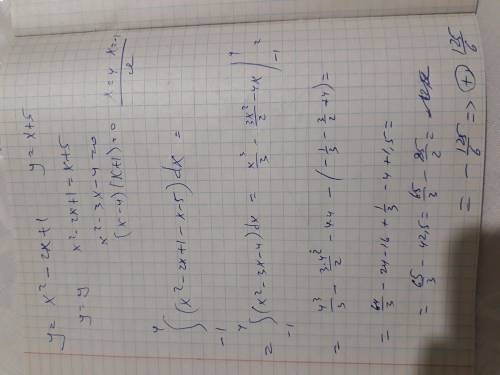 y = x² - 2x + 1    y = x + 5
y = y    x² - 2x + 1 = x + 5
x² - 3x - 4 = 0
(x - 4)(x + 1) = 0    x = 4  x = -1
∫₋₁⁴ (x² - 2x + 1 - x - 5) dx =
= ∫₋₁⁴ (x² - 3x - 4) dx = x³/3 - 3x²/2 - 4x |₋₁⁴ =
= 4³/3 - 3·4²/2 - 4·4 - (-1/3 - 3/2 + 4) =
= 64/3 - 24 - 16 + 1/3 - 4 + 1,5 =
= 65/3 - 42,5 = 65/3 - 85/2 =
= - 125/6 => (+) 125/6